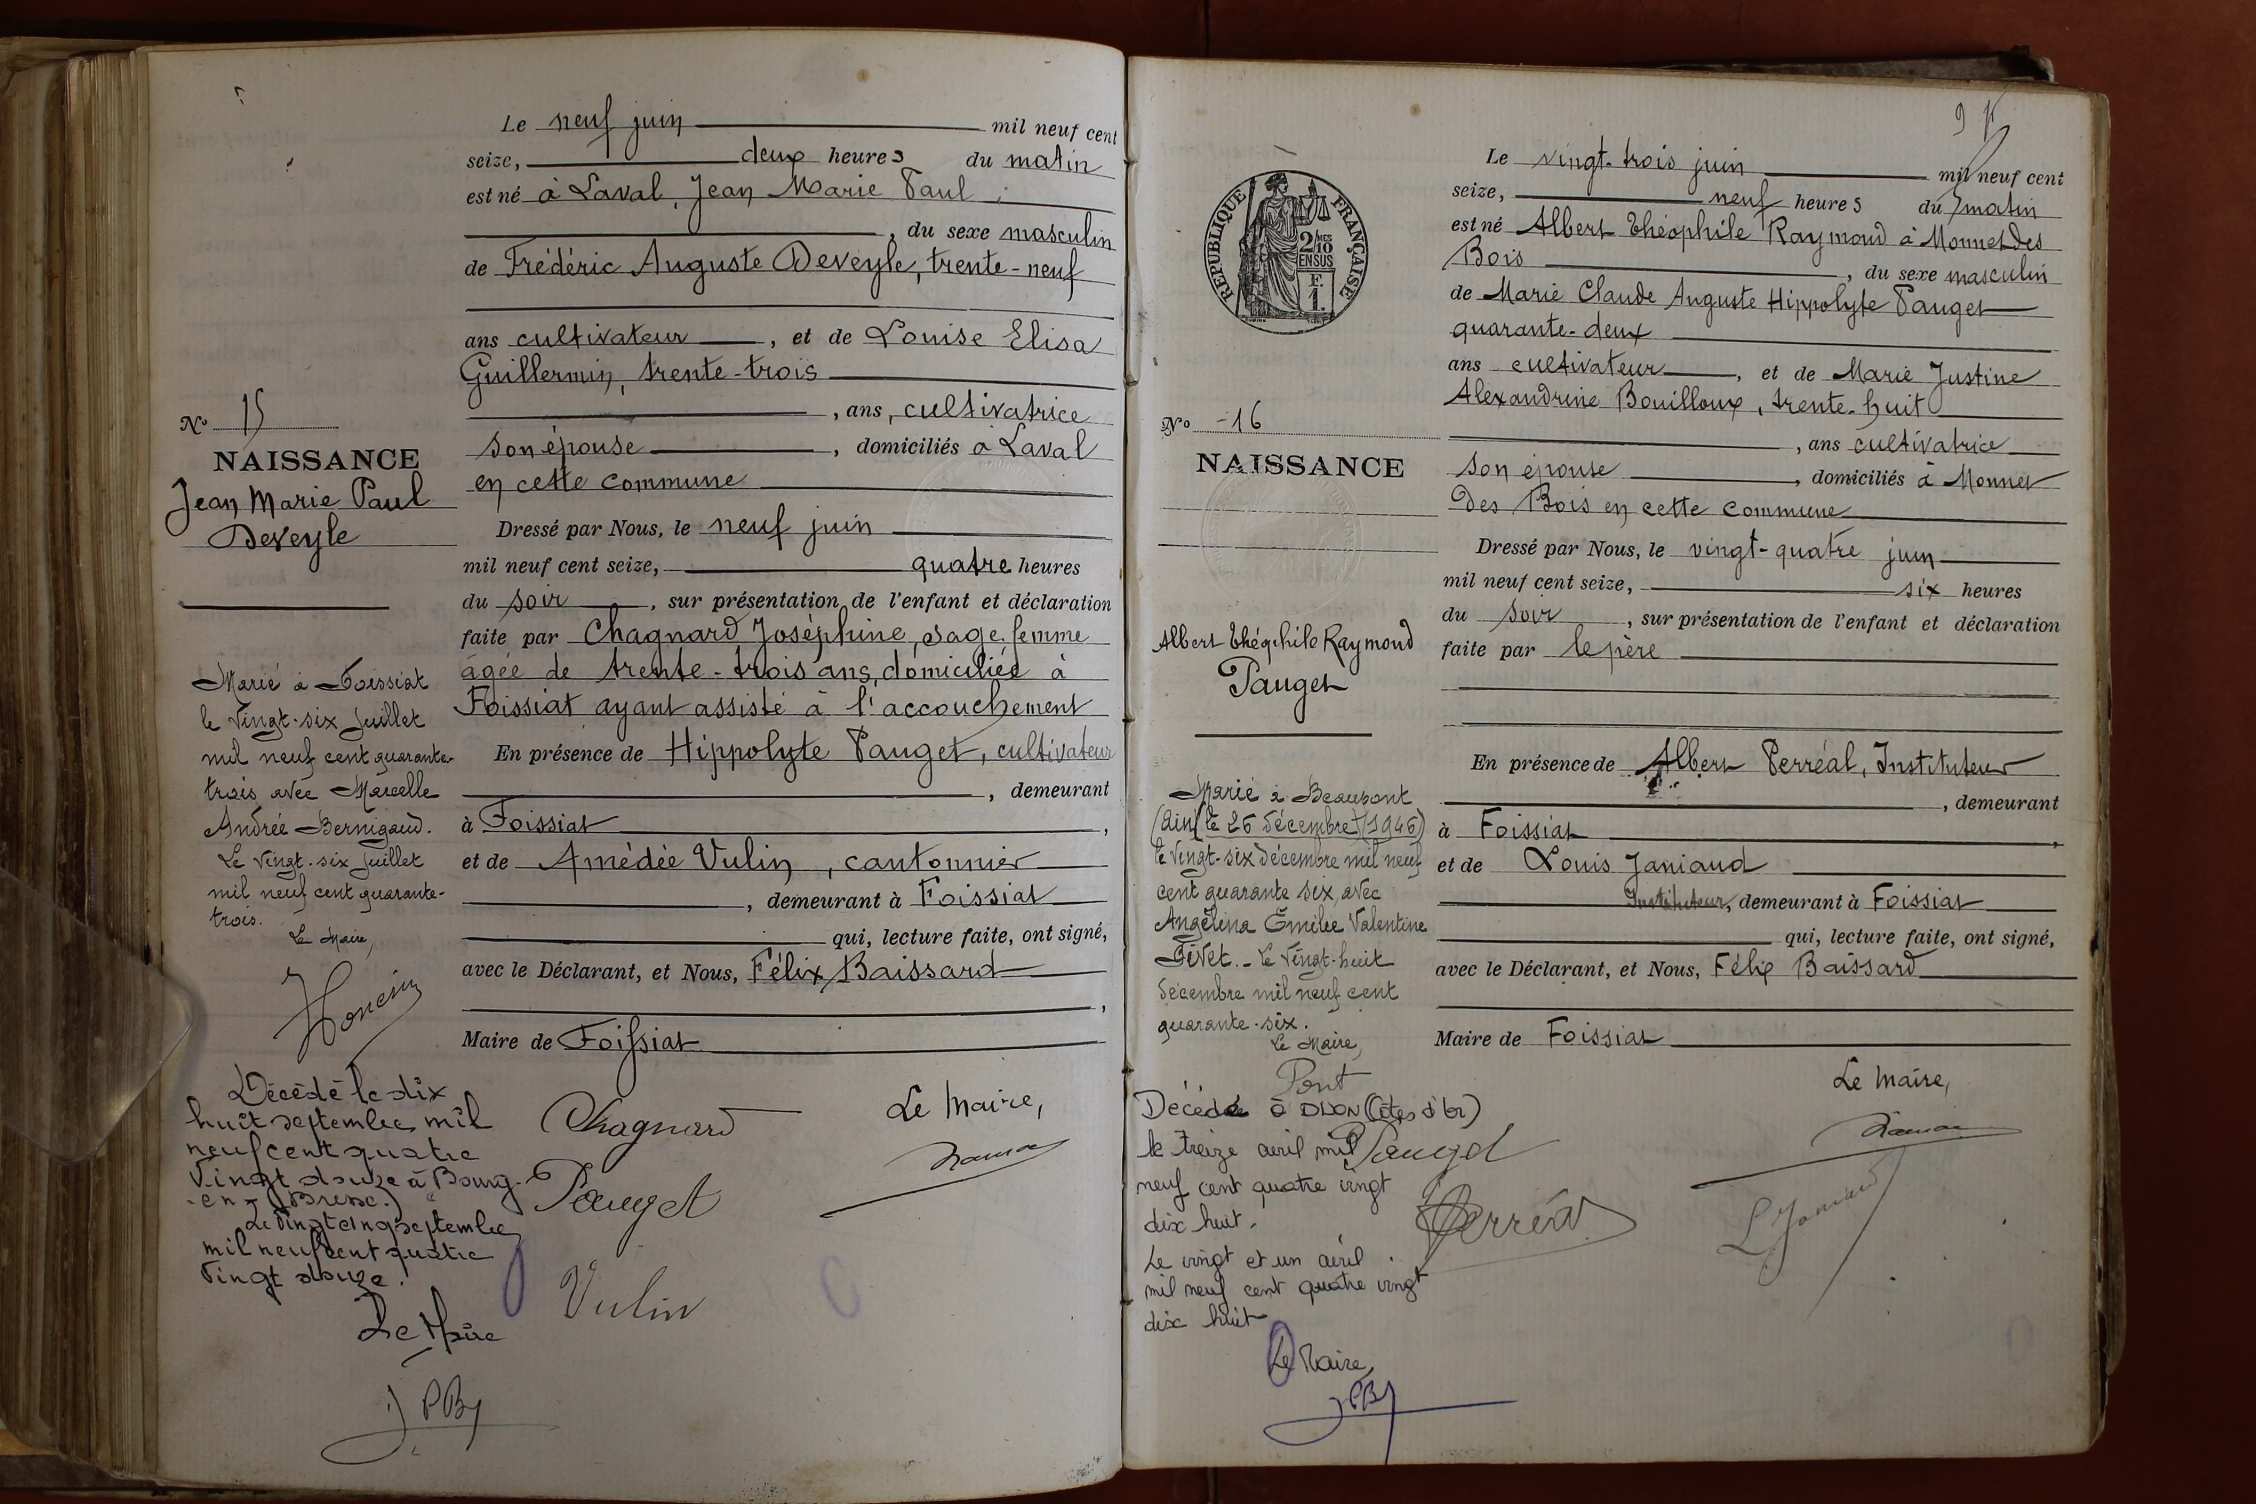 Le neuf juin mil neuf cent
seize, deux heures du matin
est né à Laval, Jean Marie Paul
, du sexe masculin
de Frédéric Auguste Deveyle, trente-neuf
ans cultivateur, et de Louise Elisa
Guillermin, trente-trois
, ans, cultivatrice
son épouse, domiciliés à Laval
en cette commune
Dressé par Nous, le neuf juin
mil neuf cent seize, quatre heures
du soir, sur présentation de l'enfant et déclaration
faite par Chagnard Joséphine, sage-femme
agée de trente-trois ans, domiciliée à
Foissiat ayant assisté à l'accouchement
En présence de Hippolyte Pauget, cultivateur
, demeurant
à Foissiat,
et de Amédée Vulin, cantonnier
, demeurant à Foissiat
qui, lecture faite, ont signé,
avec le Déclarant, et Nous, Félix Baissard
,
Maire de Foissiat
Le Maire,
Chagnard
Pauget
Vulin
No 15
NAISSANCE
Jean Marie Paul
Deveyle
Marié à Foissiat
le vingt-six juillet
mil neuf cent quarante-
trois avec Marcelle
Andrée Bernigaud.
Le vingt-six juillet
mil neuf cent quarante-
trois.
Le Maire,
Décédé le dix
huit septembre mil
neuf cent quatre
vingt douze à Bourg-
-en-(Bresse.)
Le vingt cinq septembre
mil neuf cent quatre
vingt douze.
Le Maire
JPB
9
RÉPUBLIQUE FRANÇAISE
2/10 MES
EN SUS
F.
1.
Le vingt-trois juin mil neuf cent
seize, neuf heures du matin
est né Albert Théophile Raymond à Monnet des
Bois, du sexe masculin
de Marie Claude Auguste Hippolyte Pauget
quarante-deux
ans cultivateur, et de Marie Justine
Alexandrine Bouilloux, trente-huit
, ans cultivatrice
son épouse, domiciliés à Monnet
des Bois en cette commune
Dressé par Nous, le vingt-quatre juin
mil neuf cent seize, six heures
du soir, sur présentation de l'enfant et déclaration
faite par le père
En présence de Albert Perréal, Instituteur
, demeurant
à Foissiat,
et de Louis Janiaud
Instituteur, demeurant à Foissiat
qui, lecture faite, ont signé,
avec le Déclarant, et Nous, Félix Baissard
Maire de Foissiat
Le Maire,
Pauget
Perréal
L Janiaud
No 16
NAISSANCE
Albert Théophile Raymond
Pauget
Marié à Beaupont
(Ain) le 26 décembre (1946)
le vingt-six décembre mil neuf
cent quarante six, avec
Angélina Émilie Valentine
Givet. - Le vingt-huit
décembre mil neuf cent
quarante-six.
Le Maire,
Pont
Décédé à DIJON (Côtes d'or)
le treize avril mil
neuf cent quatre vingt
dix huit.
Le vingt et un avril
mil neuf cent quatre vingt
dix huit
Le Maire,
JPB